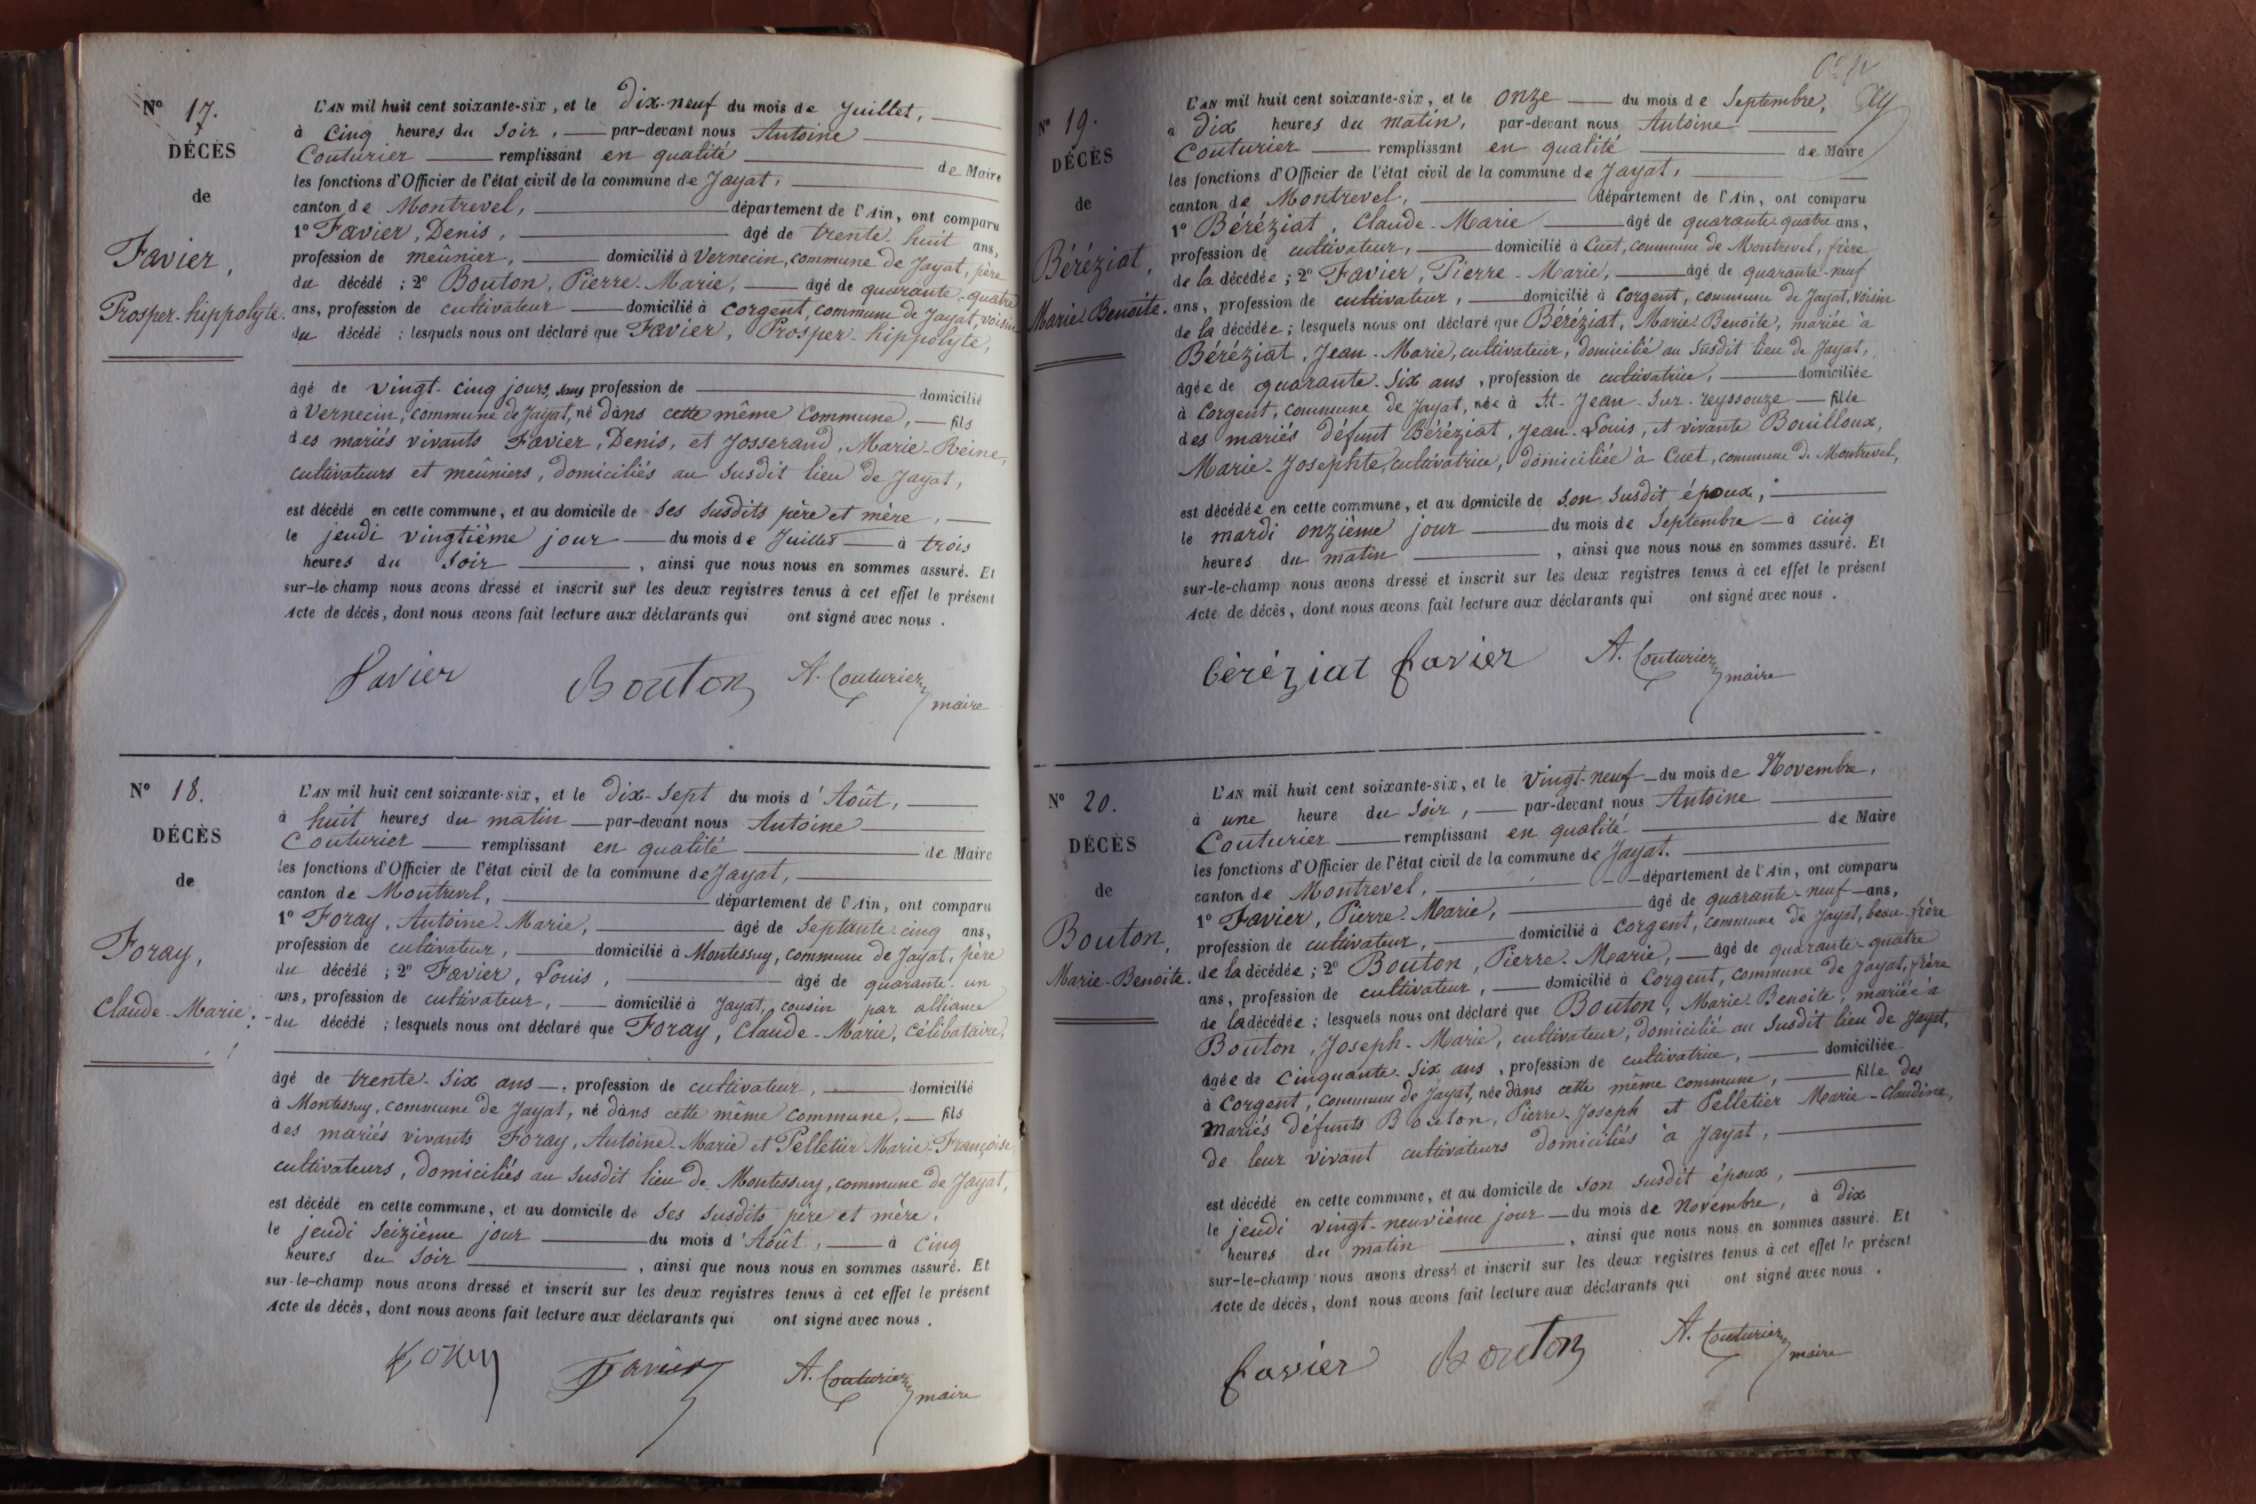 Nº 17.
DÉCÈS
de
Favier,
Prosper-hippolyte.
L'AN mil huit cent soixante-six, et le dix-neuf du mois de Juillet,
à cinq heures du soir, par-devant nous Antoine
Couturier remplissant en qualité de Maire
les fonctions d'Officier de l'état civil de la commune de Jayat,
canton de Montrevel, département de l'Ain, ont comparu
1º Favier, Denis, âgé de trente-huit ans,
profession de meûnier, domicilié à Vernecin, commune de Jayat, père
du décédé ; 2º Bouton, Pierre-Marie, âgé de quarante-quatre
ans, profession de cultivateur domicilié à Corgent, commune de Jayat, voisin
du décédé ; lesquels nous ont déclaré que Favier, Prosper-hippolyte,
âgé de vingt-cinq jours, sans profession de domicilié
à Vernecin, commune de Jayat, né dans cette même commune, fils
des mariés vivants Favier, Denis, et Josserand, Marie-Reine,
cultivateurs et meûniers, domiciliés au susdit lieu de Jayat,
est décédé en cette commune, et au domicile de ses susdits père et mère,
le jeudi vingtième jour du mois de Juillet à trois
heures du soir, ainsi que nous nous en sommes assuré. Et
sur-le-champ nous avons dressé et inscrit sur les deux registres tenus à cet effet le présent
Acte de décès, dont nous avons fait lecture aux déclarants qui ont signé avec nous.
Favier Bouton A. Couturier maire
Nº 18.
DÉCÈS
de
Foray,
Claude-Marie.
L'AN mil huit cent soixante-six, et le dix-sept du mois d'Août,
à huit heures du matin par-devant nous Antoine
Couturier remplissant en qualité de Maire
les fonctions d'Officier de l'état civil de la commune de Jayat,
canton de Montrevel, département de l'Ain, ont comparu
1º Foray, Antoine-Marie, âgé de septante-cinq ans,
profession de cultivateur, domicilié à Montessuy, commune de Jayat, père
du décédé ; 2º Favier, Louis, âgé de quarante-un
ans, profession de cultivateur, domicilié à Jayat, cousin par alliance
du décédé ; lesquels nous ont déclaré que Foray, Claude-Marie, célibataire,
âgé de trente-six ans, profession de cultivateur, domicilié
à Montessuy, commune de Jayat, né dans cette même commune, fils
des mariés vivants Foray, Antoine-Marie et Pelletier Marie-Françoise,
cultivateurs, domiciliés au susdit lieu de Montessuy, commune de Jayat,
est décédé en cette commune, et au domicile de ses susdits père et mère,
le jeudi seizième jour du mois d'Août, à cinq
heures du soir, ainsi que nous nous en sommes assuré. Et
sur-le-champ nous avons dressé et inscrit sur les deux registres tenus à cet effet le présent
Acte de décès, dont nous avons fait lecture aux déclarants qui ont signé avec nous.
Foray Favier A. Couturier maire
Nº 19.
DÉCÈS
de
Béréziat,
Marie-Benoite.
L'AN mil huit cent soixante-six, et le onze du mois de Septembre,
à dix heures du matin, par-devant nous Antoine
Couturier remplissant en qualité de Maire
les fonctions d'Officier de l'état civil de la commune de Jayat,
canton de Montrevel, département de l'Ain, ont comparu
1º Béréziat, Claude-Marie âgé de quarante-quatre ans,
profession de cultivateur, domicilié à Cuet, commune de Montrevel, frère
de la décédée ; 2º Favier, Pierre-Marie, âgé de quarante-neuf
ans, profession de cultivateur, domicilié à Corgent, commune de Jayat, voisin
de la décédée ; lesquels nous ont déclaré que Béréziat, Marie-Benoite, mariée à
Béréziat, Jean-Marie, cultivateur, domicilié au susdit lieu de Jayat,
âgée de quarante-six ans, profession de cultivatrice, domiciliée
à Corgent, commune de Jayat, née à St-Jean-sur-reyssouze fille
des mariés défunt Béréziat, Jean-Louis, et vivante Bouilloux,
Marie-Josephte, cultivatrice, domiciliée à Cuet, commune de Montrevel,
est décédée en cette commune, et au domicile de son susdit époux,
le mardi onzième jour du mois de Septembre à cinq
heures du matin, ainsi que nous nous en sommes assuré. Et
sur-le-champ nous avons dressé et inscrit sur les deux registres tenus à cet effet le présent
Acte de décès, dont nous avons fait lecture aux déclarants qui ont signé avec nous.
béréziat favier A. Couturier maire
Nº 20.
DÉCÈS
de
Bouton,
Marie-Benoite.
L'AN mil huit cent soixante-six, et le vingt-neuf du mois de Novembre,
à une heure du soir, par-devant nous Antoine
Couturier remplissant en qualité de Maire
les fonctions d'Officier de l'état civil de la commune de Jayat.
canton de Montrevel, département de l'Ain, ont comparu
1º Favier, Pierre-Marie, âgé de quarante-neuf ans,
profession de cultivateur, domicilié à Corgent, commune de Jayat, beau-frère
de la décédée ; 2º Bouton, Pierre-Marie, âgé de quarante-quatre
ans, profession de cultivateur, domicilié à Corgent, commune de Jayat, frère
de la décédée ; lesquels nous ont déclaré que Bouton, Marie-Benoite, mariée à
Bouton, Joseph-Marie, cultivateur, domicilié au susdit lieu de Jayat,
âgée de cinquante-six ans, profession de cultivatrice, domiciliée
à Corgent, commune de Jayat, née dans cette même commune, fille des
mariés défunts Bouton, Pierre-Joseph et Pelletier Marie-Claudine,
de leur vivant cultivateurs domiciliés à Jayat,
est décédé en cette commune, et au domicile de son susdit époux,
le jeudi vingt-neuvième jour du mois de Novembre, à dix
heures du matin, ainsi que nous nous en sommes assuré. Et
sur-le-champ nous avons dressé et inscrit sur les deux registres tenus à cet effet le présent
Acte de décès, dont nous avons fait lecture aux déclarants qui ont signé avec nous.
favier Bouton A. Couturier maire